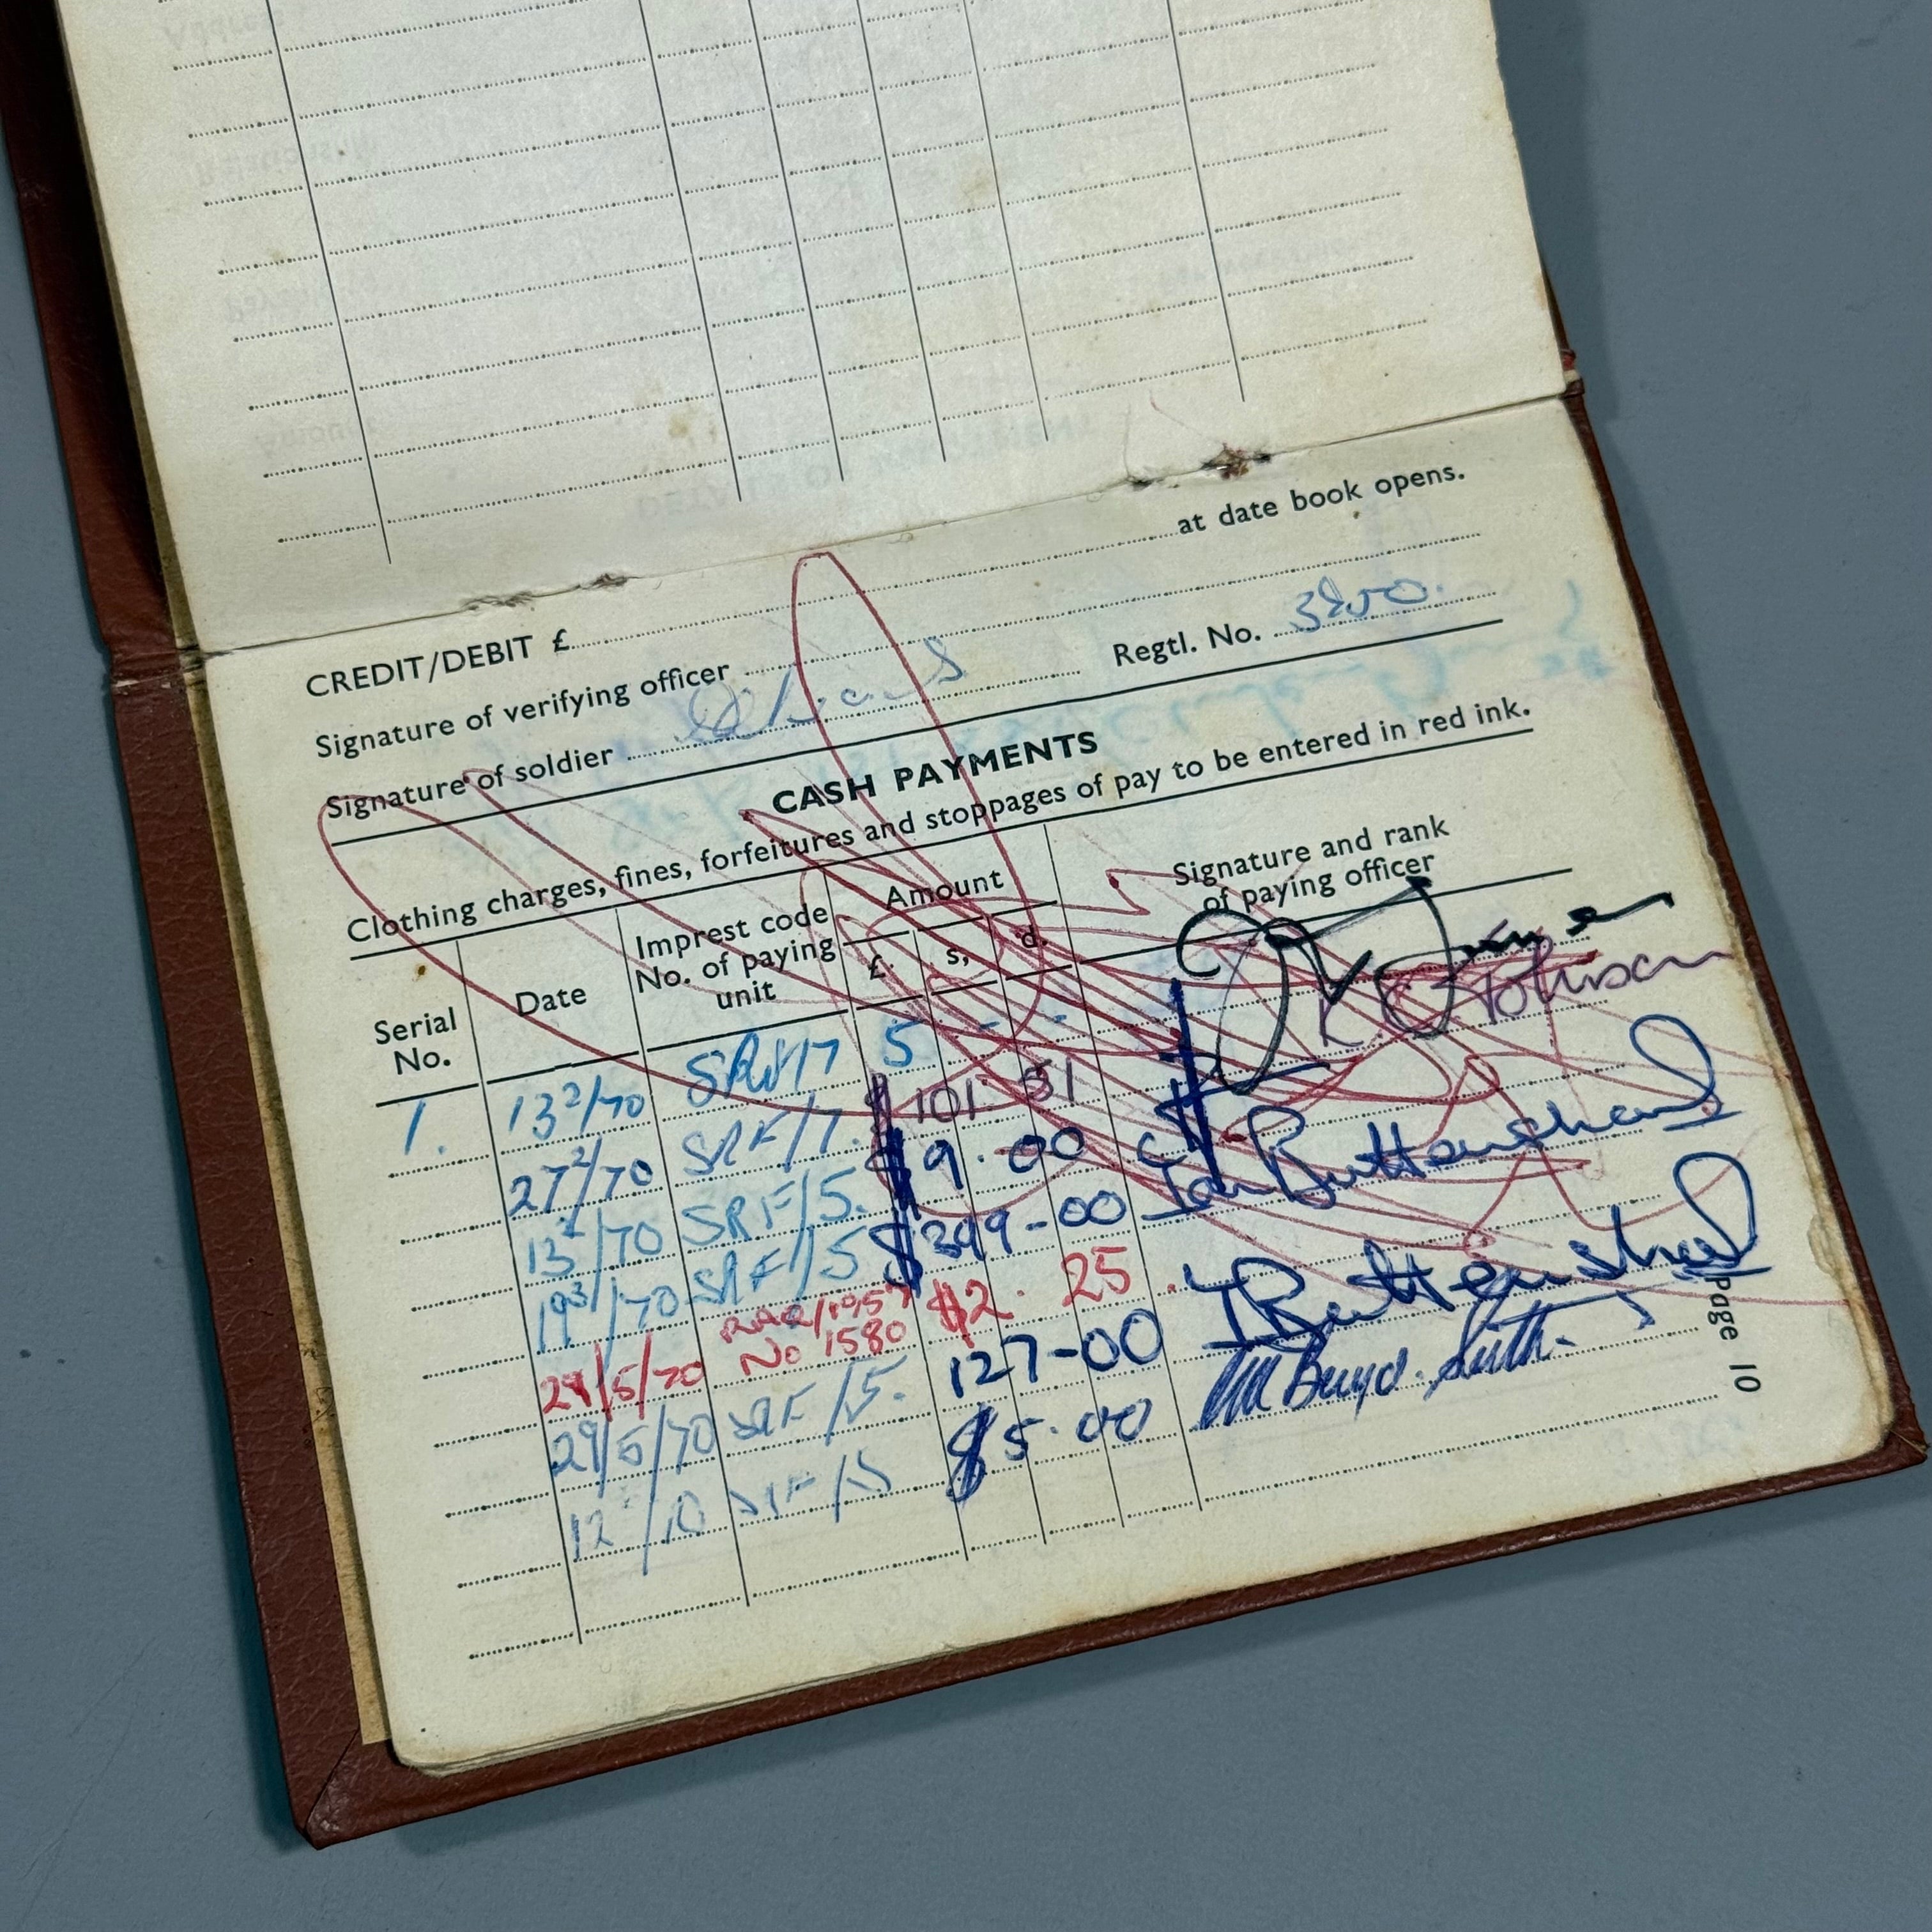 CREDIT/DEBIT £ at date book opens.
Signature of verifying officer
Signature of soldier Regtl. No. 3850.
CASH PAYMENTS
Clothing charges, fines, forfeitures and stoppages of pay to be entered in red ink.
Serial No. Date Imprest code No. of paying unit Amount £. s, d. Signature and rank of paying officer
1. 13 2/70 5 - -
27 2/70 SRF/7. $ 101 · 31 K Johnson
13 /70 SRF/5. $9.00
19 3/70 SRF/5 $399-00 Ian Buttenshaw
29/5/70 RAR/1957 No 1580 $2. 25
29/5/70 SRF/5. 127-00 I Buttenshaw
12 /70 SRF/5 $5.00
Page 10